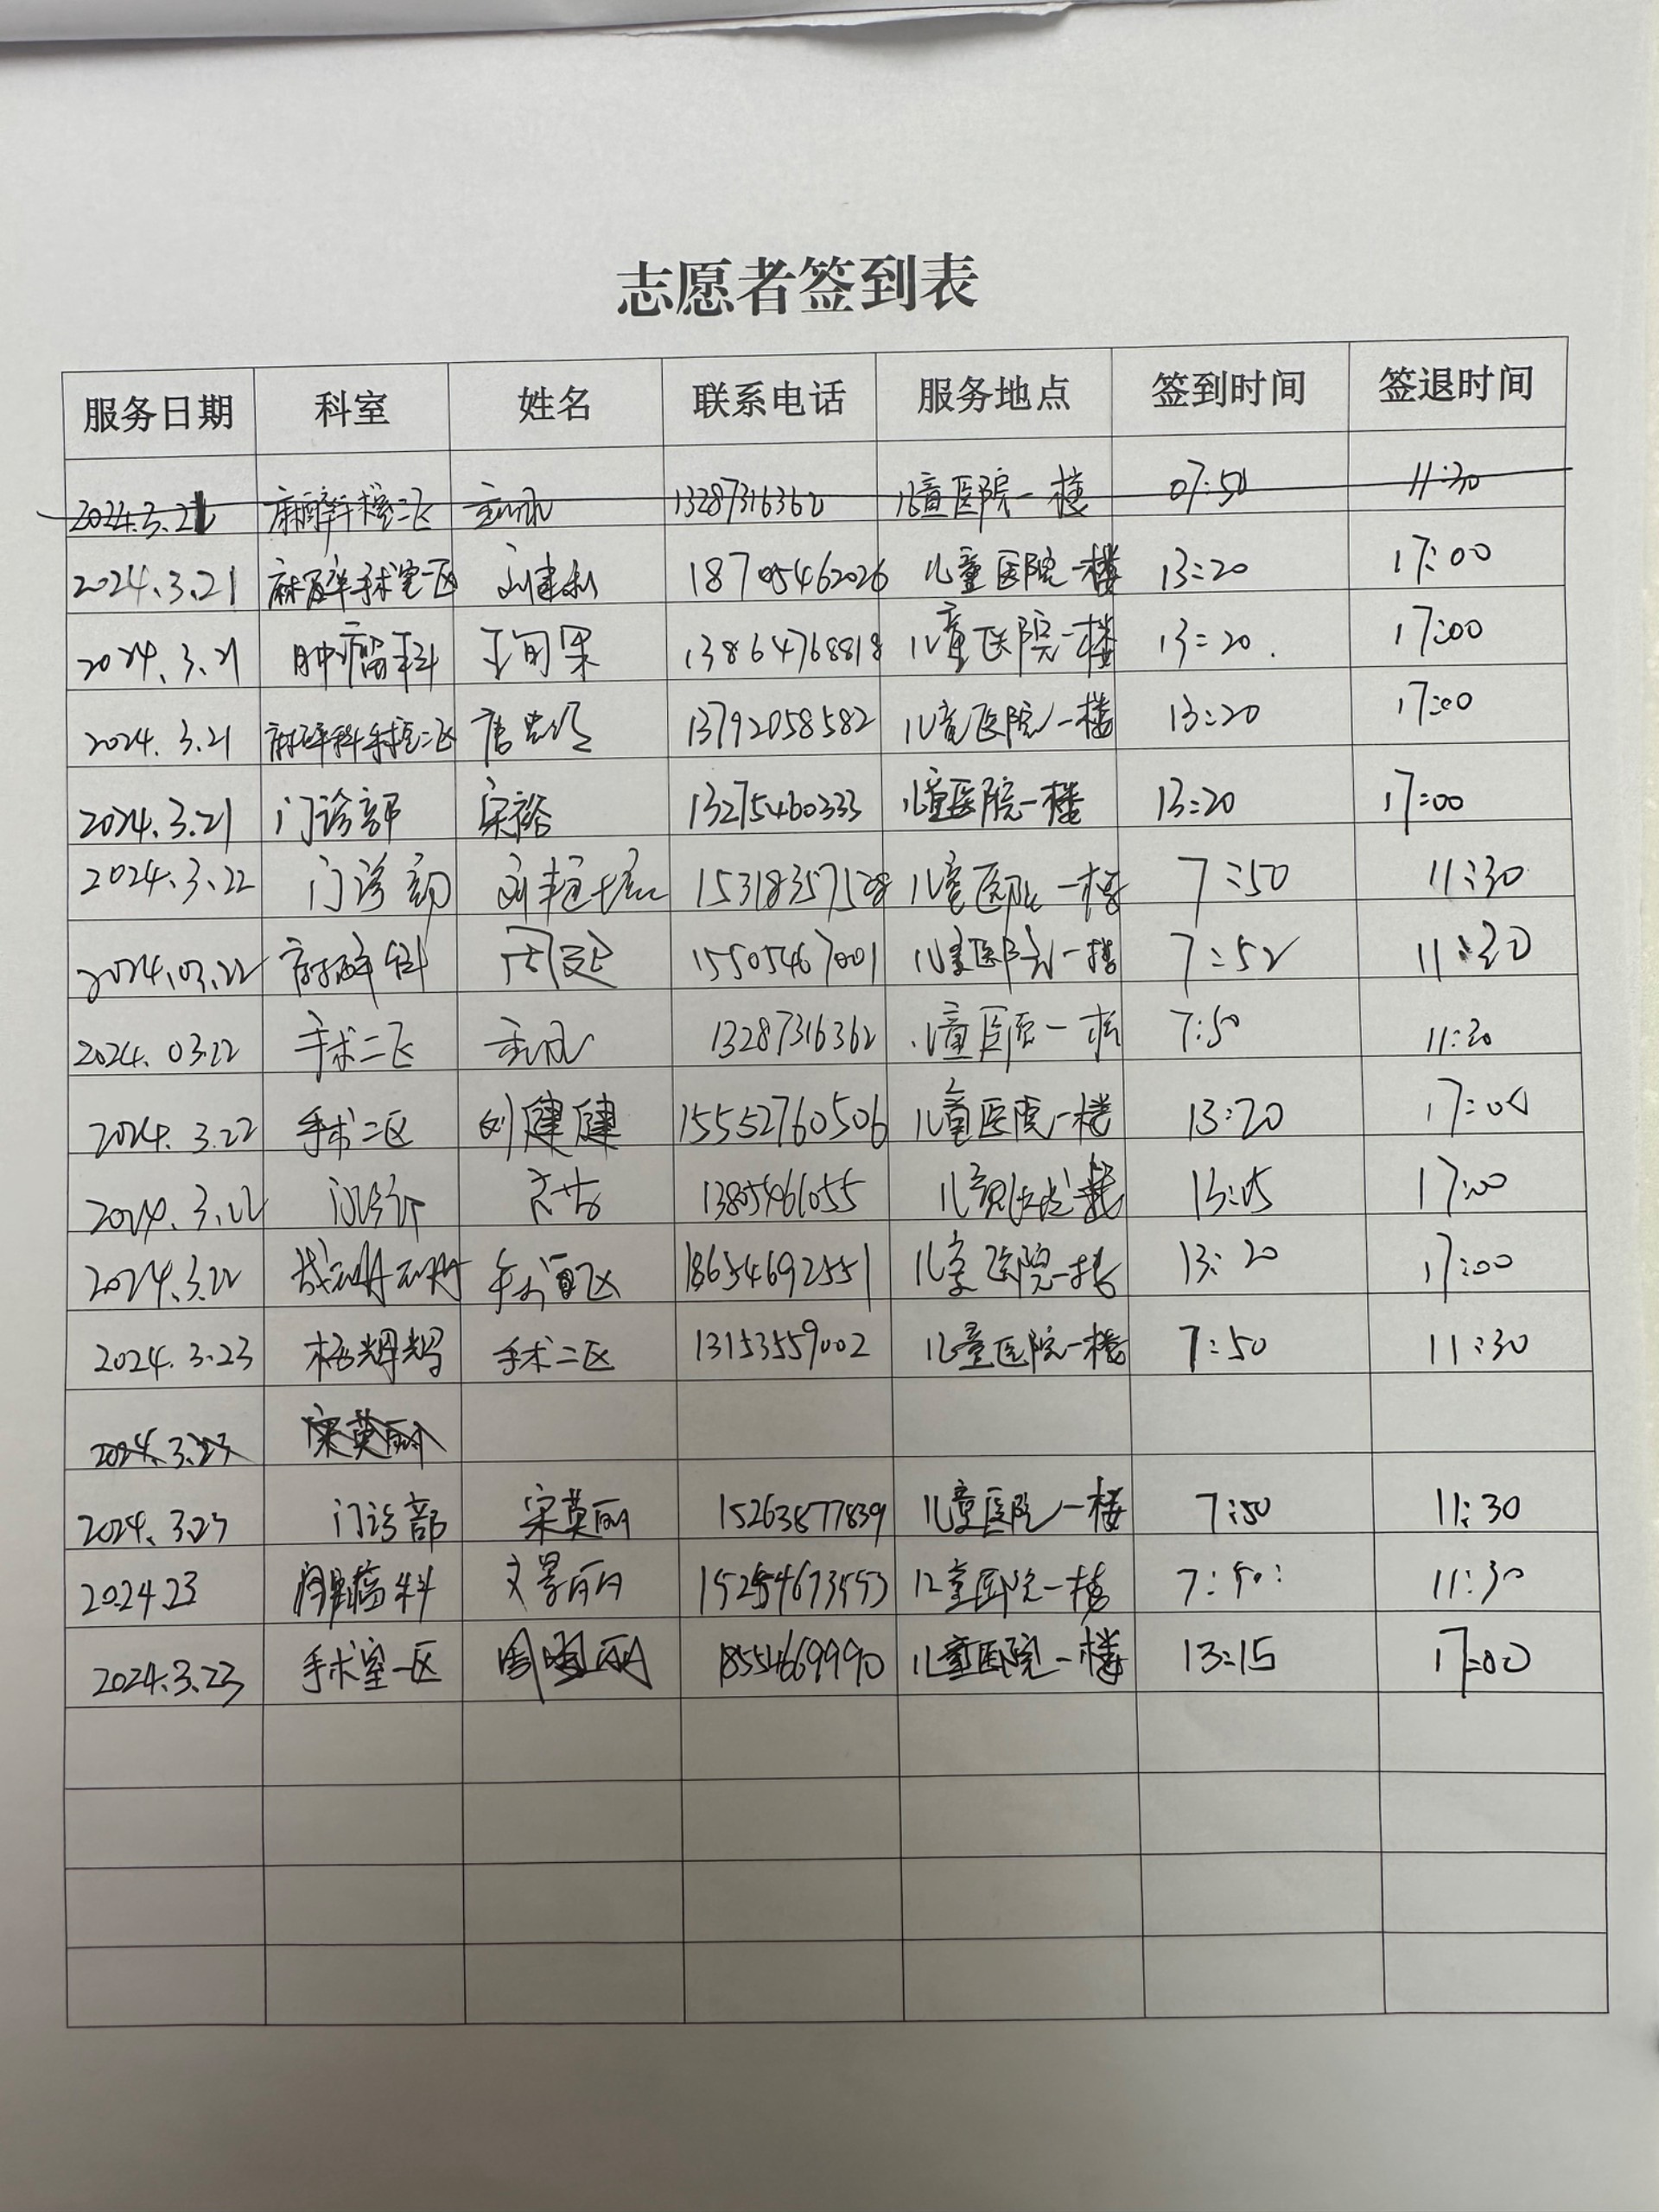 志愿者签到表
服务日期 科室 姓名 联系电话 服务地点 签到时间 签退时间
2024.3.21 麻醉手术室二区 13287316362 儿童医院一楼 07:50 11:30
2024.3.21 麻醉手术室一区 刘建 18705462026 儿童医院一楼 13:20 17:00
2024.3.21 肿瘤科 13864768818 儿童医院一楼 13:20. 17:00
2024.3.21 麻醉科手术室二区 唐 13792058582 儿童医院一楼 13:20 17:00
2024.3.21 门诊部 宋裕 13275460333 儿童医院一楼 13:20 17:00
2024.3.22 门诊部 刘 儿童医院一楼 7:50 11:30
2024.03.22 麻醉科 周 15505467001 儿童医院一楼 7:52 11:30
2024.03.22 手术二区 13287316362 儿童医院一楼 7:50 11:30
2024.3.22 手术二区 刘健健 15552760506 儿童医院一楼 13:20 17:00
2024.3.22 门诊 13805461055 13:15 17:00
2024.3.22 18654692551 儿童医院一楼 13:20 17:00
2024.3.23 杨辉辉 手术二区 13153559002 儿童医院一楼 7:50 11:30
2024.3.23 宋莫丽
2024.3.23 门诊部 宋莫丽 15263877839 儿童医院一楼 7:50 11:30
2024.23 肿瘤科 文景丽 儿童医院一楼 7:50: 11:30
2024.3.23 手术室一区 周 丽 18554669990 儿童医院一楼 13:15 17:00